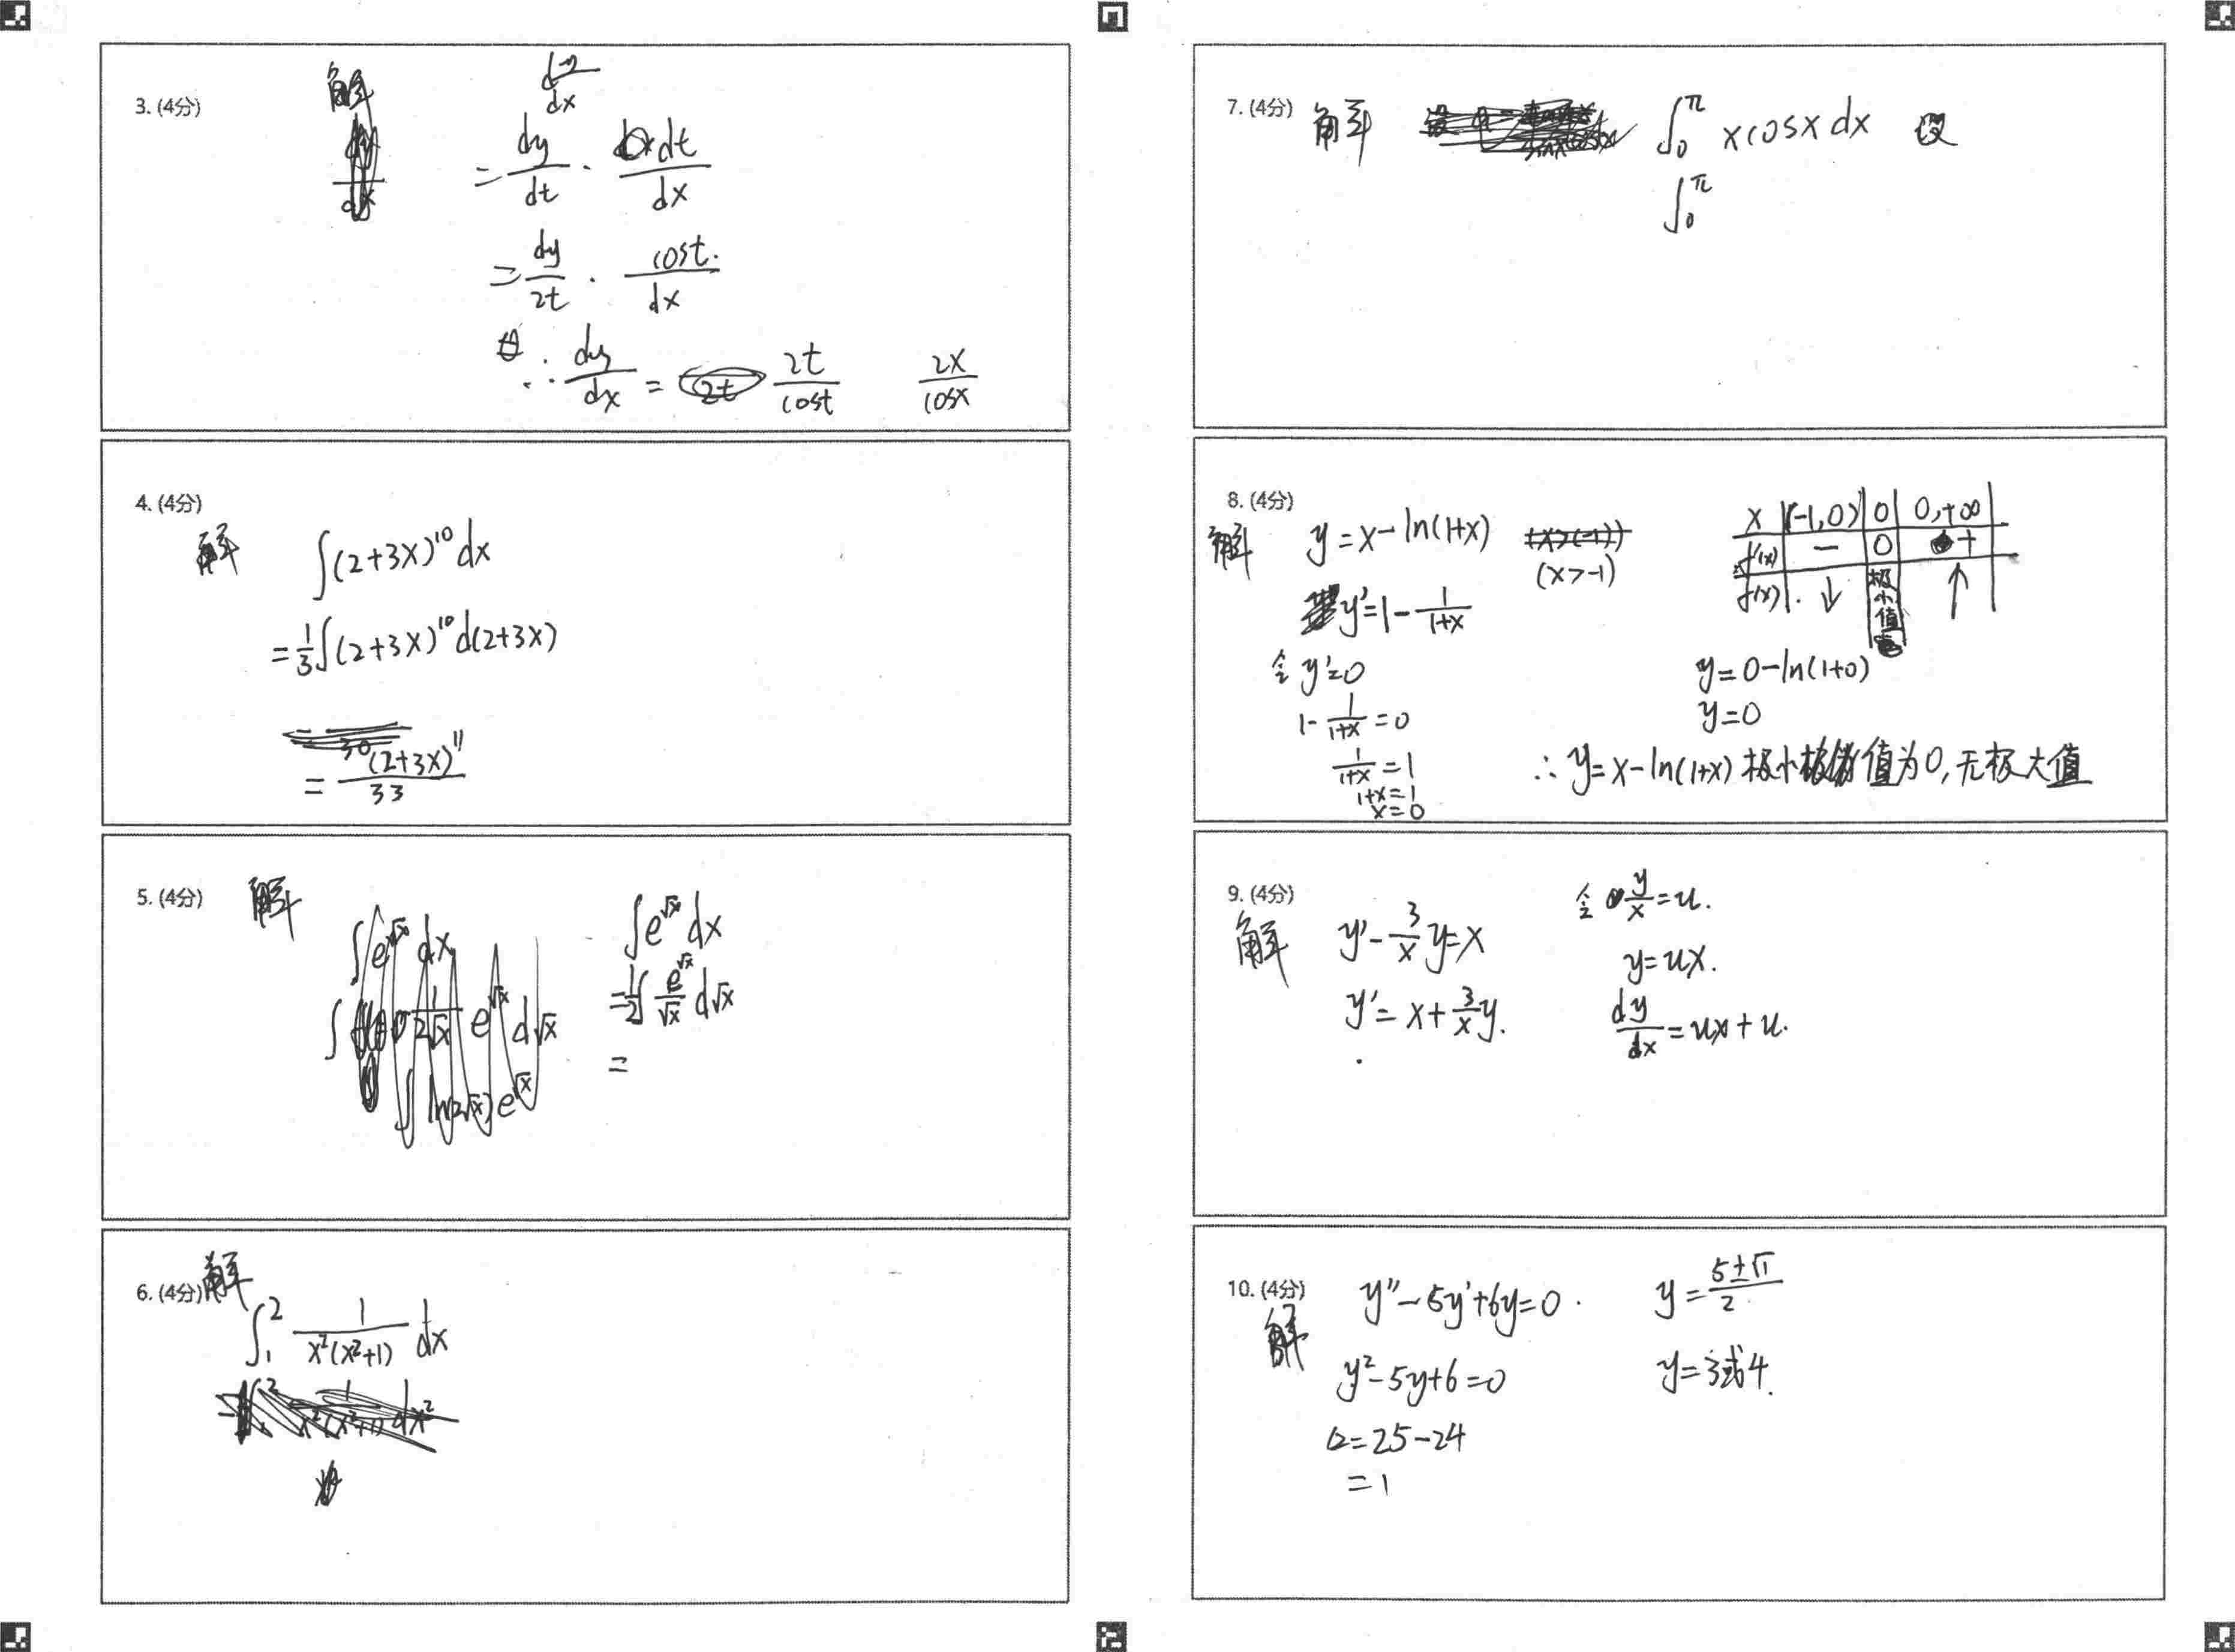 3. (4分)
解
dy/dx
= dy/dt · dt/dx
= dy/2t · cost/dx
∴ dy/dx = 2t/cost 2x/cosx
4. (4分)
解 ∫(2+3x)^10 dx
= 1/3 ∫(2+3x)^10 d(2+3x)
= (2+3x)^11/33
5. (4分)
解
∫e^√x dx
= 1/2 ∫ e^√x/√x d√x
=
6. (4分) 解
∫₁² 1/(x²(x²+1)) dx
7. (4分) 解 ∫₀^π xcosx dx 设
∫₀^π
8. (4分)
解 y=x-ln(1+x) (x>-1)
y'=1-1/(1+x)
令 y'=0
1-1/(1+x)=0
1/(1+x)=1
1+x=1
x=0
x (-1,0) 0 0,+∞
f'(x) - 0 +
f(x) ↓ 极小值 ↑
y=0-ln(1+0)
y=0
∴ y=x-ln(1+x) 极小值为0,无极大值
9. (4分)
解 y'-3/x y=x
y'=x+3/x y.
令 y/x=u.
y=ux.
dy/dx=ux+u.
10. (4分)
解 y''-5y'+6y=0.
y²-5y+6=0
Δ=25-24
=1
y=(5±√1)/2
y=3或4.